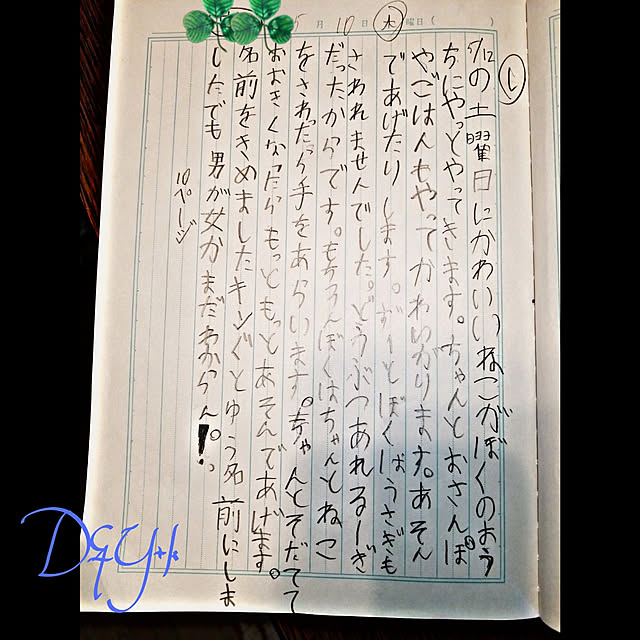 5月10日(木)曜日( )
①
5/12の土曜日にかわいいねこがぼくのおう
ちにやっとやってきます。ちゃんとおさんぽ
やごはんもやってかわいがります。あそん
であげたりします。ずーとぼくはうさぎも
さわれませんでした。どうぶつあれるーぎ
だったからです。もちろんぼくはちゃんとねこ
をさわったら手をあらいます。ちゃんとそだてて
おおきくなったらもっともっとあそんであげます。
名前をきめましたキングとゆう名前にしま
したでも男か女かまだわからん。!
10ページ